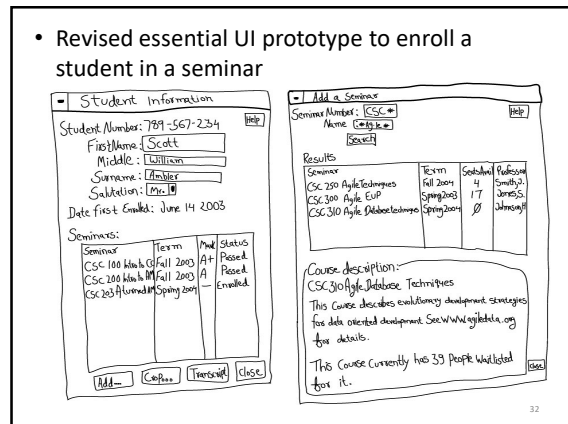 • Revised essential UI prototype to enroll a
student in a seminar
- Student Information
Student Number: 789-567-234 Help
First Name: Scott
Middle: William
Surname: Ambler
Salutation: Mr.
Date First Enrolled: June 14 2003
Seminars:
Seminar Term Mark Status
CSC 100 Intro to CS Fall 2003 A+ Passed
CSC 200 Intro to AM Fall 2003 A Passed
CSC 203 AM Spring 2004 — Enrolled
Add... Drop... Transcript Close
- Add a Seminar
Seminar Number: CSC* Help
Name *Agile*
Search
Results
Seminar Term Seats Avail Professor
CSC 250 Agile Techniques Fall 2004 4 Smith, J.
CSC 300 Agile EUP Spring 2003 17 Jones, S.
CSC 310 Agile Database techniques Spring 2004 Ø Johnson, H
Course description:
CSC 310 Agile Database Techniques
This Course describes evolutionary development strategies
for data oriented development. See www.agiledata.org
for details.
This Course Currently has 39 People Waitlisted
for it. Close
32